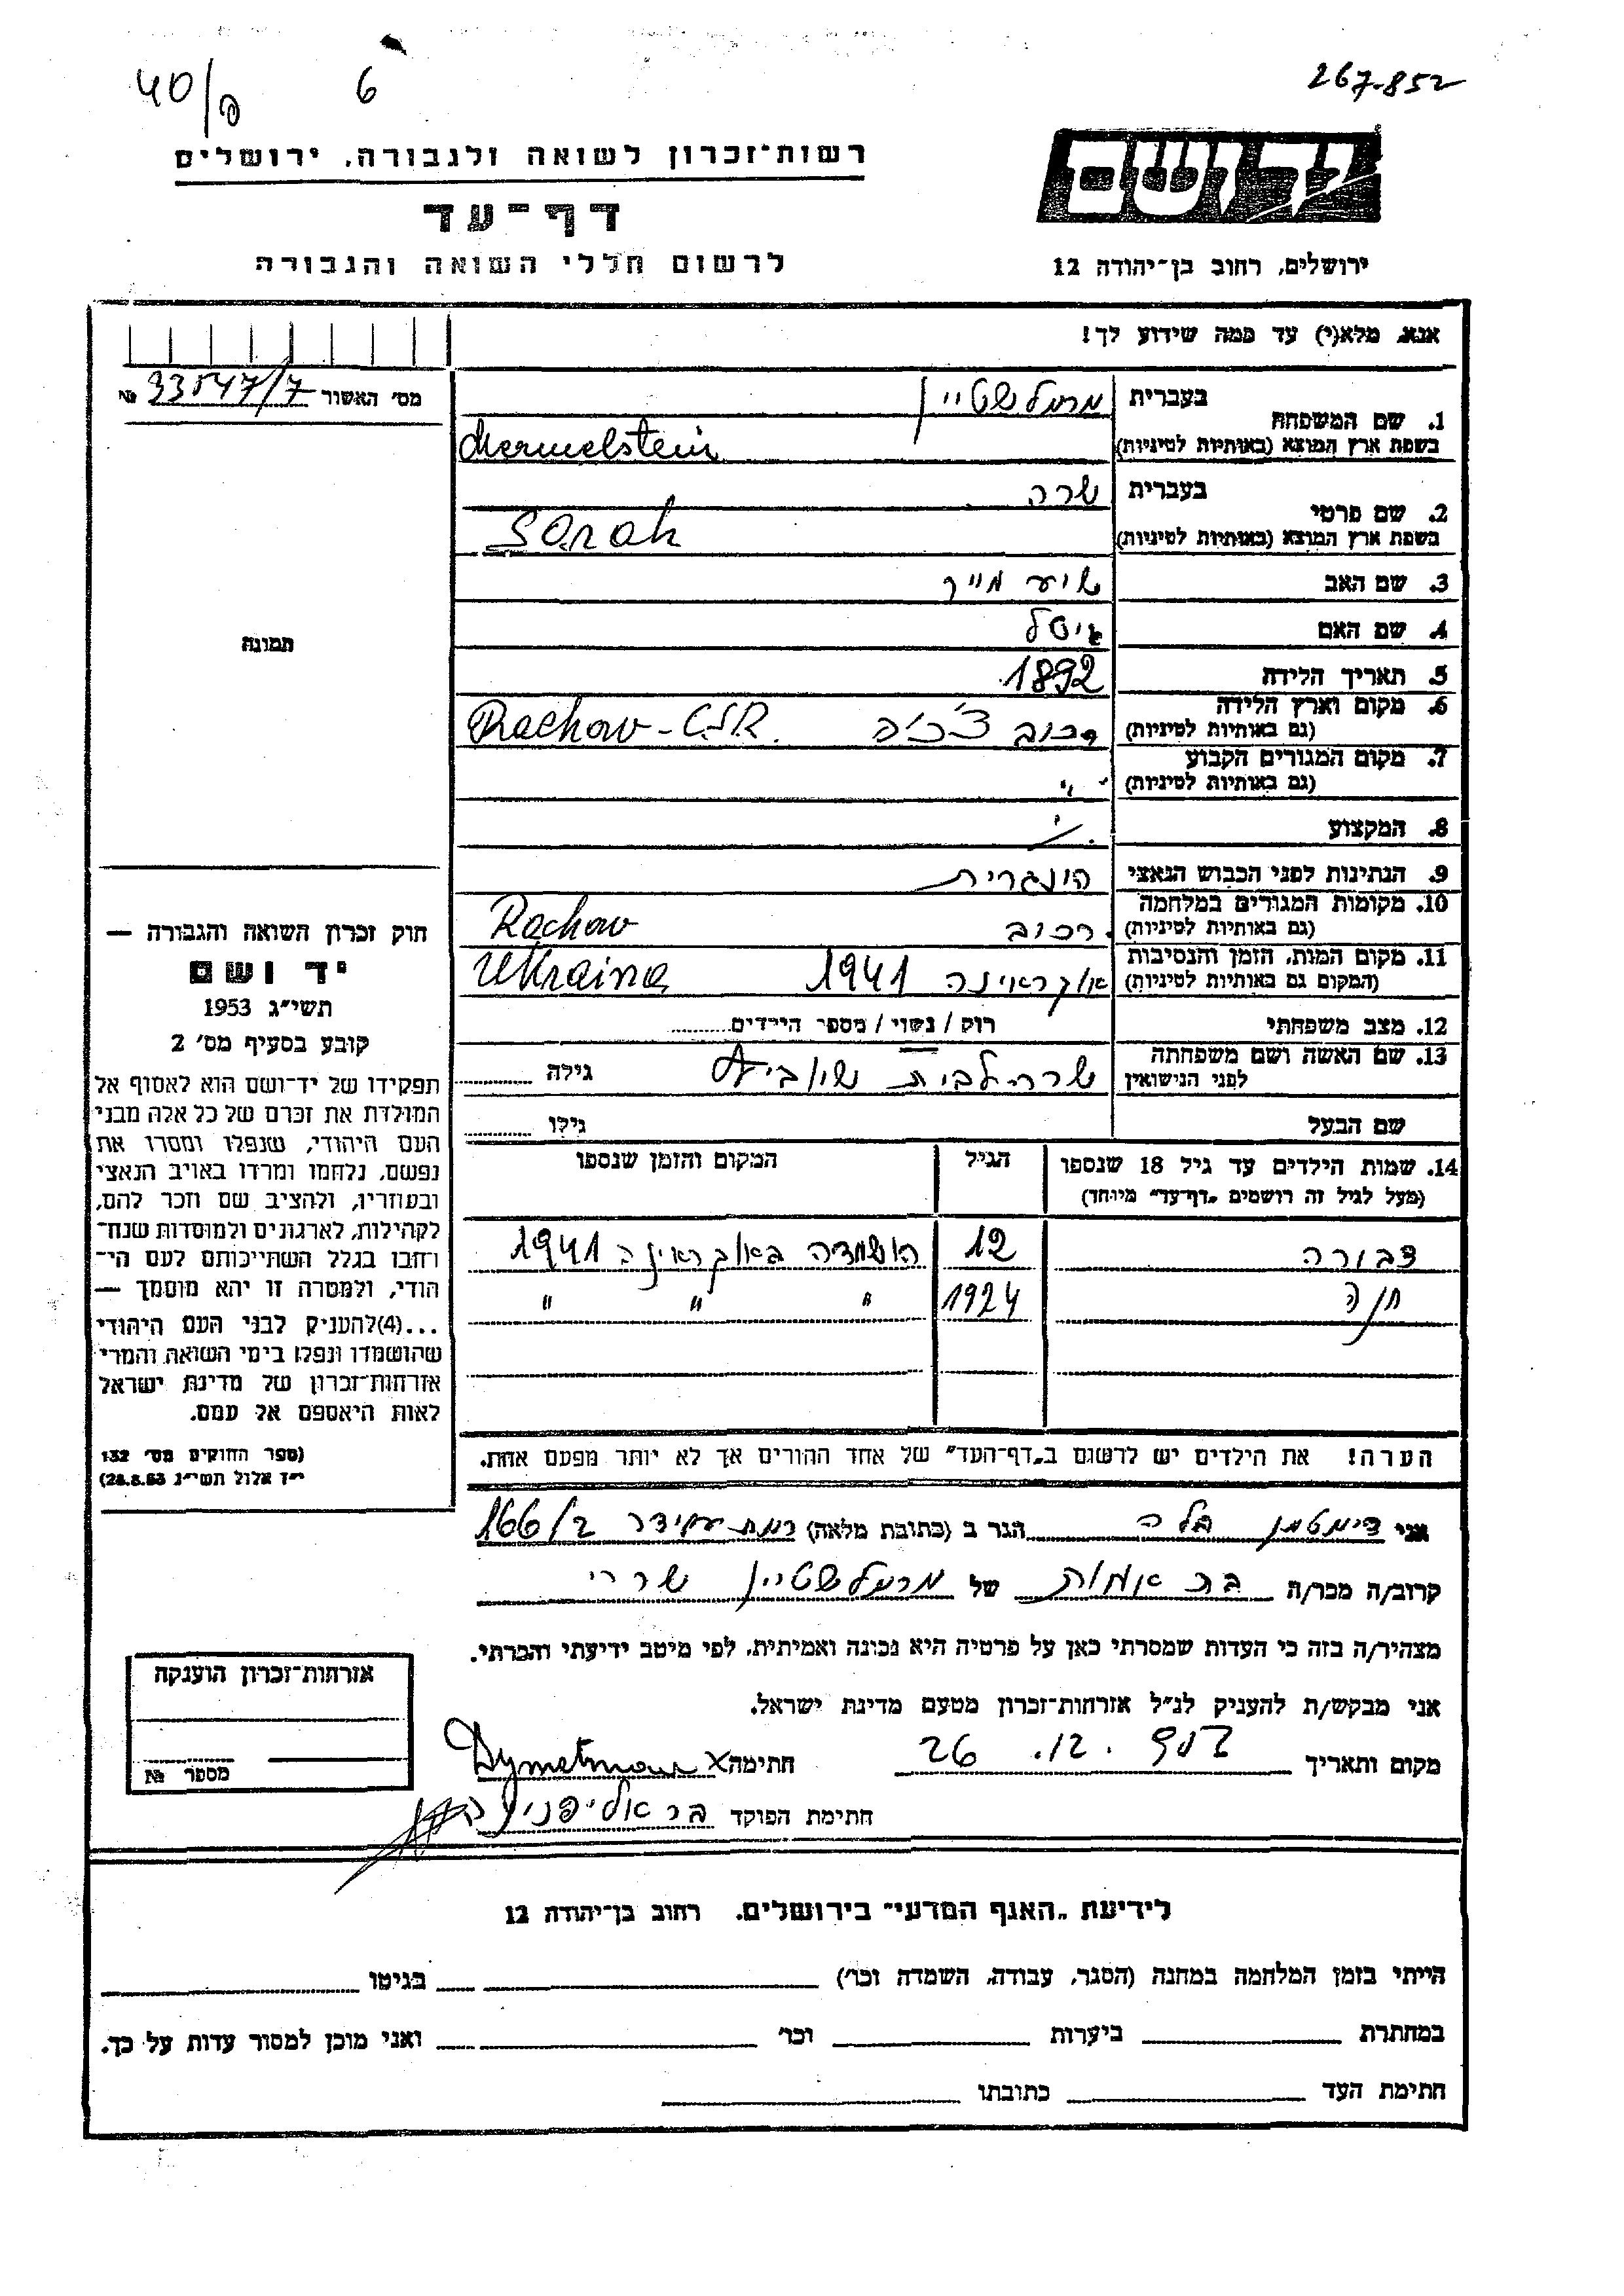 40/פ 6 267.852
רשות־זכרון לשואה ולגבורה, ירושלים
יד ושם
דף־עד
לרשום חללי השואה והגבורה
ירושלים, רחוב בן־יהודה 12
אנא, מלא(י) עד כמה שידוע לך!
מס׳ האשור 33547/7 №
1. שם המשפחה
בעברית מרמלשטיין
בשפת ארץ המוצא (באותיות לטיניות) Mermelstein
2. שם פרטי
בעברית שרה
בשפת ארץ המוצא (באותיות לטיניות) Sarah
3. שם האב שיע מייר
4. שם האם
תמונה
5. תאריך הלידה 1892
6. מקום וארץ הלידה
(גם באותיות לטיניות) רכוב צ׳כ׳ה Rachow - C.S.R.
7. מקום המגורים הקבוע
(גם באותיות לטיניות) ״
8. המקצוע
9. הנתינות לפני הכבוש הנאצי הונגרית
10. מקומות המגורים במלחמה
(גם באותיות לטיניות) רכוב Rachow
11. מקום המות, הזמן והנסיבות
(המקום גם באותיות לטיניות) אוקראינה 1941 Ukraina
12. מצב משפחתי רוק / נשוי / מספר הילדים
13. שם האשה ושם משפחתה
לפני הנישואין שרה לבית גילה
שם הבעל גילו
14. שמות הילדים עד גיל 18 שנספו
(מעל לגיל זה רושמים „דף־עד״ מיוחד)
הגיל המקום והזמן שנספו
דבורה 12 הושמדה באוקראינה 1941
חנה 1924 ״ ״ ״
הערה! את הילדים יש לרשום ב„דף־העד״ של אחד ההורים אך לא יותר מפעם אחת.
חוק זכרון השואה והגבורה —
יד ושם
תשי״ג 1953
קובע בסעיף מס׳ 2
תפקידו של יד־ושם הוא לאסוף אל
המולדת את זכרם של כל אלה מבני
העם היהודי, שנפלו ומסרו את
נפשם, נלחמו ומרדו באויב הנאצי
ובעוזריו, ולהציב שם וזכר להם,
לקהילות, לארגונים ולמוסדות שנח־
רחבו בגלל השתייכותם לעם הי־
הודי, ולמטרה זו יהא מוסמך —
...(4)להעניק לבני העם היהודי
שהושמדו ונפלו בימי השואה והמרי
אזרחות־זכרון של מדינת ישראל
לאות היאספם אל עמם.
(ספר החוקים מס׳ 132
י״ד אלול תשי״ג 28.8.53)
אני דימטמן בלה הגר ב (כתובת מלאה) רמת עמידר 166/2
קרוב/ה מכר/ה בת אחות של מרמלשטיין שרה
מצהיר/ה בזה כי העדות שמסרתי כאן על פרטיה היא נכונה ואמיתית, לפי מיטב ידיעתי והכרתי.
אני מבקש/ת להעניק לנ״ל אזרחות־זכרון מטעם מדינת ישראל.
מקום ותאריך 26 .12. חתימה x Dymetman
חתימת הפוקד
אזרחות־זכרון הוענקה
מספר №
לידיעת „האגף המדעי״ בירושלים, רחוב בן־יהודה 12
הייתי בזמן המלחמה במחנה (הסגר, עבודה, השמדה וכו׳) בגיטו
במחתרת ביערות וכו׳ ואני מוכן למסור עדות על כך.
חתימת העד כתובתו